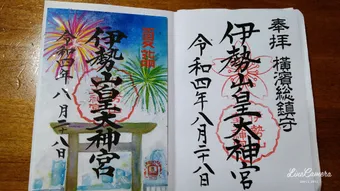 奉拝
横濱総鎮守
伊勢山皇大神宮
令和四年八月二十八日
伊勢山皇大神宮
令和四年八月二十八日
LineCamera